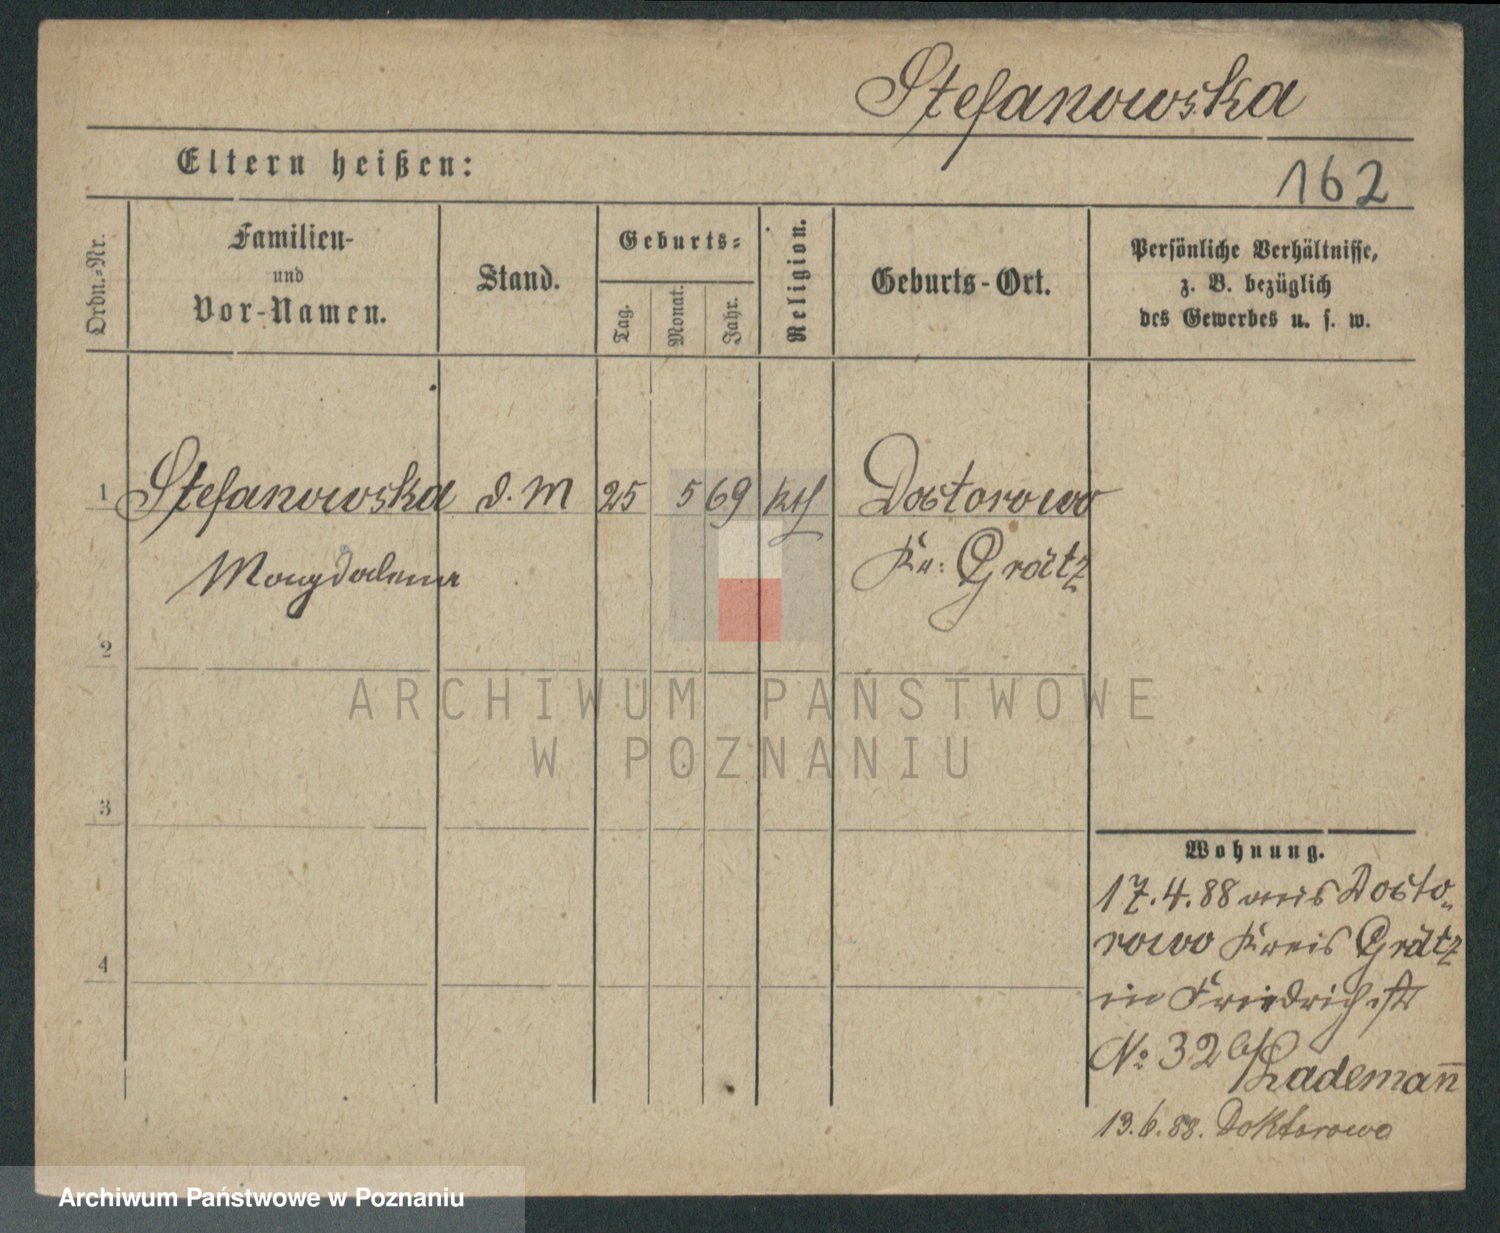 Stefanowska
Eltern heißen:
162
Ordn.-Nr.
Familien-
und
Vor-Namen.
Stand.
Geburts-
Tag.
Monat.
Jahr.
Religion.
Geburts-Ort.
Persönliche Verhältnisse,
z. B. bezüglich
des Gewerbes u. s. w.
1 Stefanowska d. M 25 5 69 kth Dostorowo
Magdalena Kr: Grätz
2
3
4
ARCHIWUM PAŃSTWOWE
W POZNANIU
Wohnung.
17.4.88 aus Dosto-
rowo Kreis Grätz
in Friedrichstr
No 32 b/
Lademann̄
13.6.88. Doktorowo
Archiwum Państwowe w Poznaniu